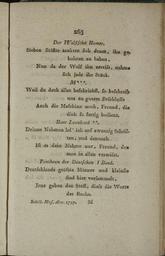 263
Der Wolfische Homer.
Sieben Städte zankten sich drum, ihn ge-
boren zu haben,
Nun da der Wolf ihn zerriß, nehme
sich jede ihr Stück.
M***.
Weil du doch alles beschriebst, so beschreib
uns zu gutem Beschlusse
Auch die Maschine noch, Freund, die
dich so fertig bedient.
Herr Leonhard **.
Deinen Nahmen les' ich auf zwanzig Schrif-
ten, und dennoch
Ist es dein Nahme nur, Freund, den
man in allen vermißt.
Pantheon der Deutschen I Band.
Deutschlands größte Männer und kleinste
sind hier versammelt,
Jene gaben den Stoff, diese die Worte
des Buchs.
Schill. Mus. Alm. 1797.